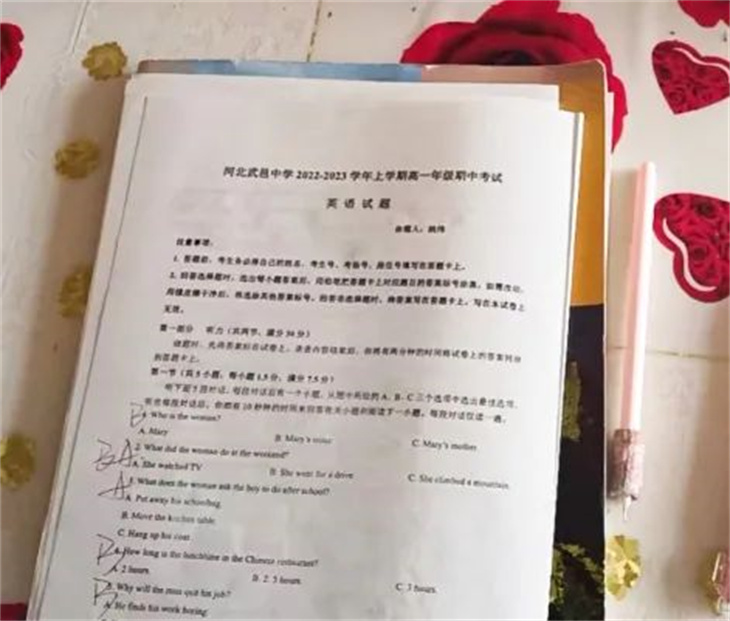 河北武邑中学 2022-2023 学年上学期高一年级期中考试
英 语 试 题
命题人：
注意事项：
1. 答题前，考生务必将自己的姓名、考生号、考场号、座位号填写在答题卡上。
2. 回答选择题时，选出每小题答案后，用铅笔把答题卡上对应题目的答案标号涂黑。如需改动，
用橡皮擦干净后，再选涂其他答案标号。回答非选择题时，将答案写在答题卡上。写在本试卷上
无效。
第一部分 听力（共两节，满分 30 分）
做题时，先将答案标在试卷上。录音内容结束后，你将有两分钟的时间将试卷上的答案转涂
到答题卡上。
第一节（共 5 小题；每小题 1.5 分，满分 7.5 分）
听下面 5 段对话。每段对话后有一个小题，从题中所给的 A、B、C 三个选项中选出最佳选项。
听完每段对话后，你都有 10 秒钟的时间来回答有关小题和阅读下一小题。每段对话仅读一遍。
B
1. Who is the woman?
A. Mary B. Mary's C. Mary's mother.
B A
2. What did the woman do at the weekend?
A. She watched TV B. She went for a drive C. She climbed a mountain.
A
3. What does the woman ask the boy to do after school?
A. Put away his schoolbag.
B. Move the kitchen table.
C. Hang up his coat.
B
4. How long is the lunchtime in the Chinese restaurant?
A. 2 hours. B. 2. 5 hours C. 3 hours.
5. Why will the man quit his job?
A. He finds his work boring.